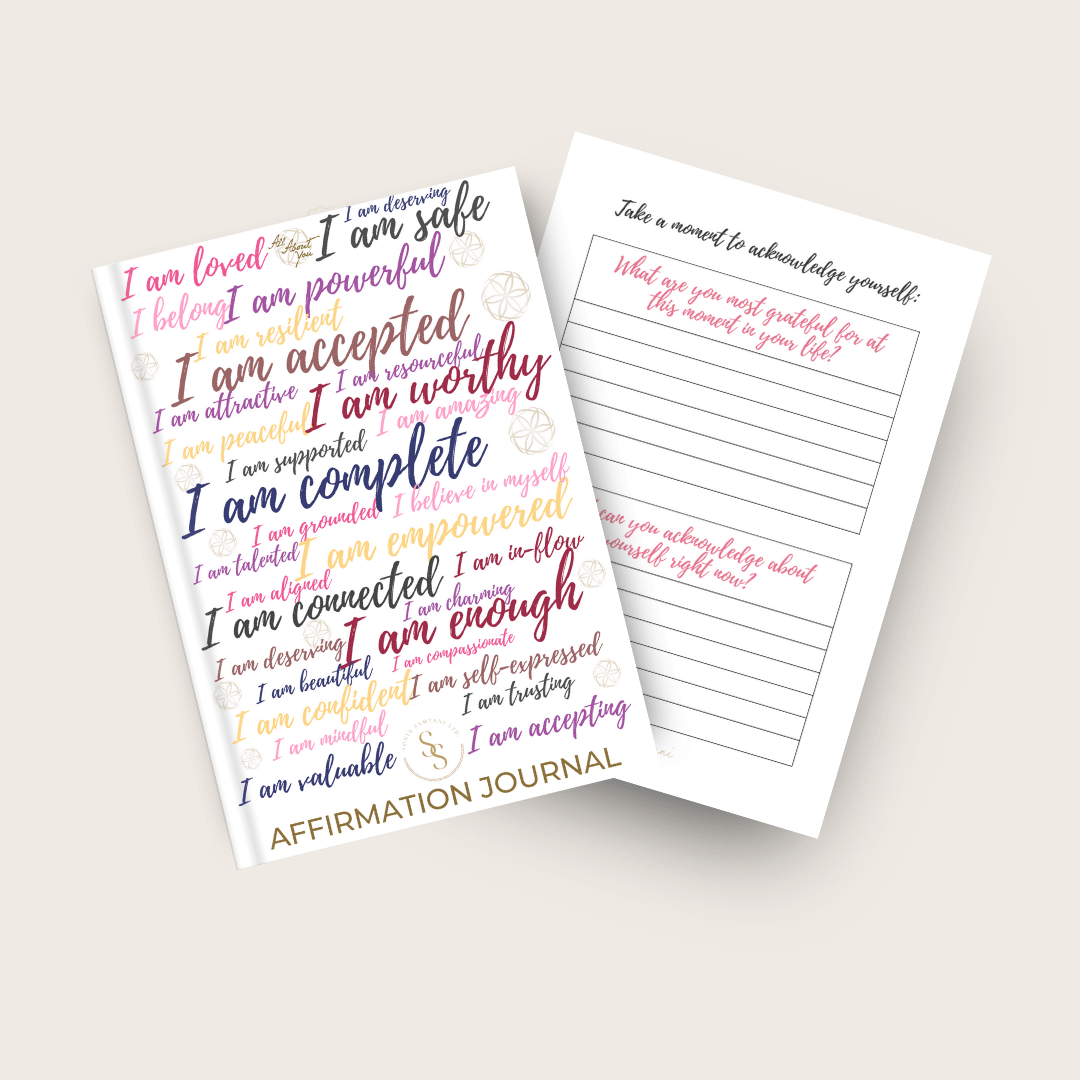 I am deserving
I am safe
I am loved
All
About
You
I am powerful
I belong
I am resilient
I am accepted
I am resourceful
I am attractive
I am worthy
I am amazing
I am peaceful
I am supported
I am complete
I believe in myself
I am grounded
I am empowered
I am talented
I am in-flow
I am aligned
I am connected
I am charming
I am enough
I am deserving
I am compassionate
I am beautiful
I am self-expressed
I am confident
I am trusting
I am mindful
I am accepting
I am valuable
SS
AFFIRMATION JOURNAL
Take a moment to acknowledge yourself:
What are you most grateful for at
this moment in your life?
can you acknowledge about
yourself right now?